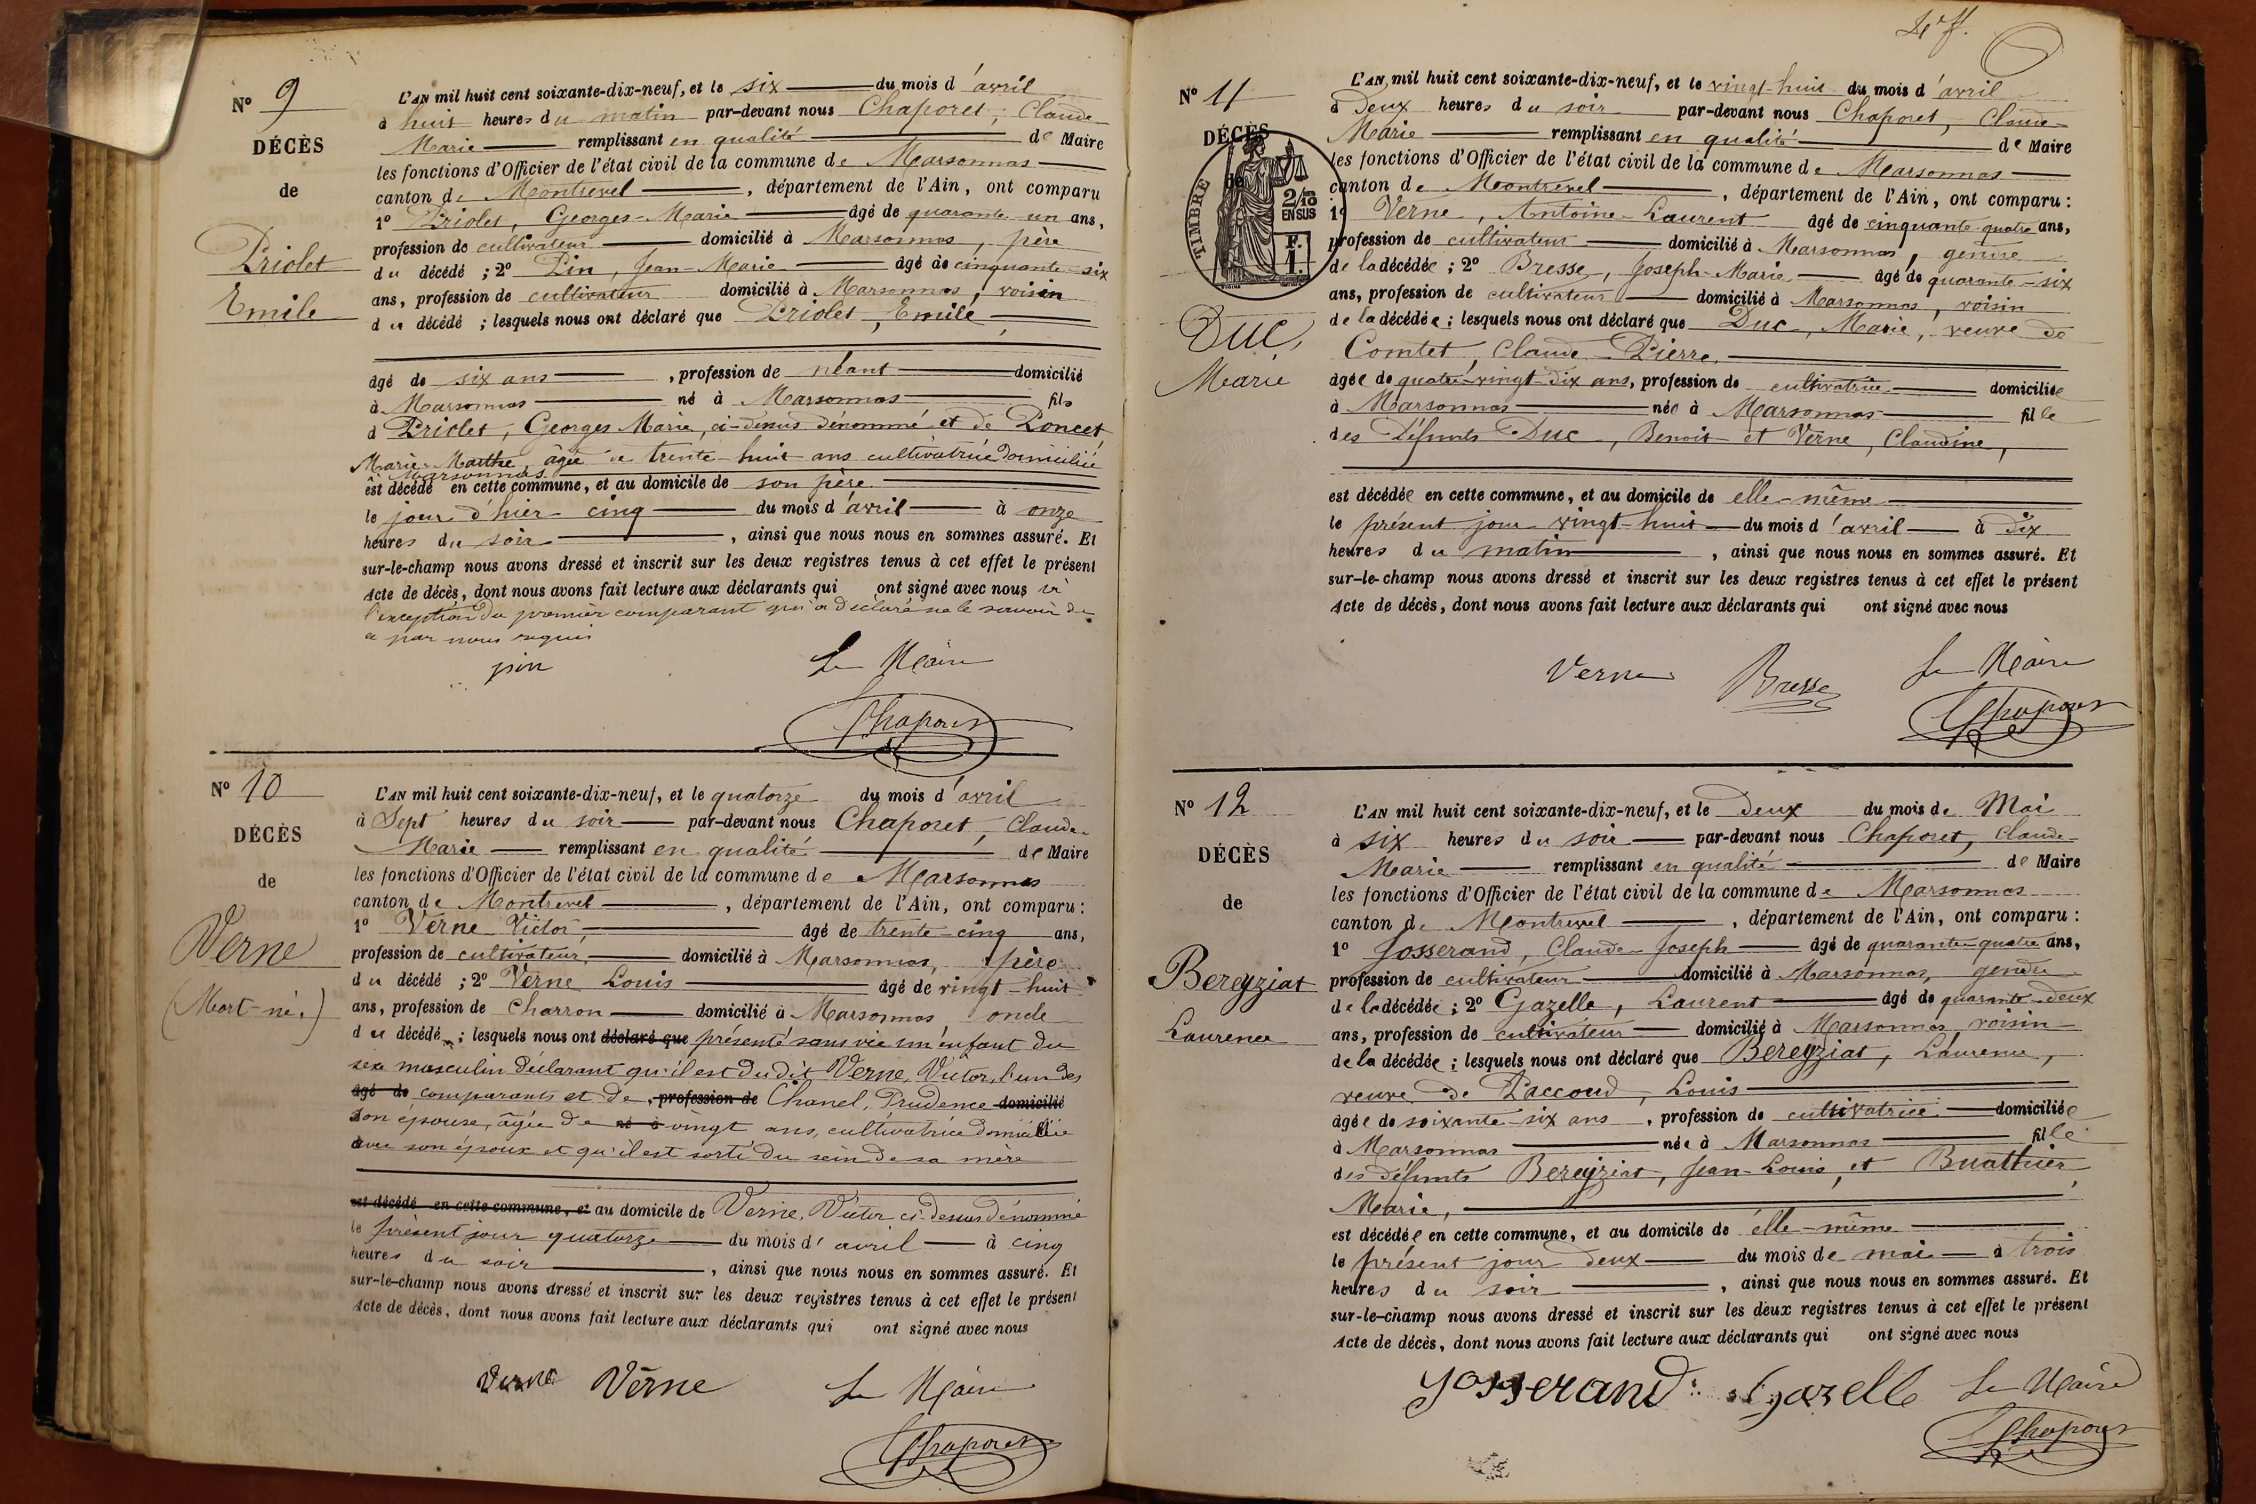 N° 9
DÉCÈS
de
Priolet
Emile
L'AN mil huit cent soixante-dix-neuf, et le six du mois d'avril
à huit heures du matin par-devant nous Chaporet, Claude
Marie remplissant en qualité de Maire
les fonctions d'Officier de l'état civil de la commune de Marsonnas
canton de Montrevel, département de l'Ain, ont comparu
1° Priolet, Georges-Marie âgé de quarante-un ans,
profession de cultivateur domicilié à Marsonnas, père
du décédé ; 2° Pin, Jean-Marie âgé de cinquante-six
ans, profession de cultivateur domicilié à Marsonnas, voisin
du décédé ; lesquels nous ont déclaré que Priolet, Emile,
âgé de six ans, profession de néant domicilié
à Marsonnas né à Marsonnas fils
d Priolet, Georges Marie, ci-dessus dénommé et de Poncet,
Marie-Marthe, âgée de trente-huit ans cultivatrice domiciliée
Marsonnas
est décédé en cette commune, et au domicile de son père
le jour d'hier cinq du mois d'avril à onze
heures du soir, ainsi que nous nous en sommes assuré. Et
sur-le-champ nous avons dressé et inscrit sur les deux registres tenus à cet effet le présent
Acte de décès, dont nous avons fait lecture aux déclarants qui ont signé avec nous à
l'exception du premier comparant qui a déclaré ne le savoir de
ce par nous requis
pin Le Maire
Chaporet
N° 10
DÉCÈS
de
Verne
(Mort-né.)
L'AN mil huit cent soixante-dix-neuf, et le quatorze du mois d'avril
à Sept heures du soir par-devant nous Chaporet, Claude
Marie remplissant en qualité de Maire
les fonctions d'Officier de l'état civil de la commune de Marsonnas
canton de Montrevel, département de l'Ain, ont comparu :
1° Verne Victor, âgé de trente-cinq ans,
profession de cultivateur, domicilié à Marsonnas, père
du décédé ; 2° Verne Louis âgé de vingt-huit
ans, profession de charron domicilié à Marsonnas oncle
du décédé ; lesquels nous ont déclaré que présenté sans vie un enfant du
sexe masculin déclarant qu'il est du dit Verne, Victor, l'un des
âgé de comparants et de, profession de Chanel, Prudence domicilié
son épouse, âgée de né à vingt ans, cultivatrice domiciliée
avec son époux et qu'il est sorti du sein de sa mère
est décédé en cette commune, et au domicile de Verne, Victor ci-dessus dénommé
le présent jour quatorze du mois d'avril à cinq
heures du soir, ainsi que nous nous en sommes assuré. Et
sur-le-champ nous avons dressé et inscrit sur les deux registres tenus à cet effet le présent
Acte de décès, dont nous avons fait lecture aux déclarants qui ont signé avec nous
Verne Verne Le Maire
Chaporet
N° 11
DÉCÈS
de
TIMBRE
2/10
EN SUS
F.
1.
Duc,
Marie
L'AN mil huit cent soixante-dix-neuf, et le vingt-huit du mois d'avril
à Deux heures du soir par-devant nous Chaporet, Claude
Marie remplissant en qualité de Maire
les fonctions d'Officier de l'état civil de la commune de Marsonnas
canton de Montrevel, département de l'Ain, ont comparu :
1° Verne, Antoine-Laurent âgé de cinquante-quatre ans,
profession de cultivateur domicilié à Marsonnas, gendre
de la décédée ; 2° Bresse, Joseph-Marie âgé de quarante-six
ans, profession de cultivateur domicilié à Marsonnas, voisin
de la décédée ; lesquels nous ont déclaré que Duc, Marie, veuve de
Comtet, Claude-Pierre,
âgée de quatre-vingt-dix ans, profession de cultivatrice domiciliée
à Marsonnas née à Marsonnas fille
des défunts Duc, Benoit et Verne, Claudine,
est décédée en cette commune, et au domicile de elle-même
le présent jour vingt-huit du mois d'avril à dix
heures du matin, ainsi que nous nous en sommes assuré. Et
sur-le-champ nous avons dressé et inscrit sur les deux registres tenus à cet effet le présent
Acte de décès, dont nous avons fait lecture aux déclarants qui ont signé avec nous
Verne Bresse Le Maire
Chaporet
N° 12
DÉCÈS
de
Bereyziat
Laurence
L'AN mil huit cent soixante-dix-neuf, et le Deux du mois de Mai
à six heures du soir par-devant nous Chaporet, Claude
Marie remplissant en qualité de Maire
les fonctions d'Officier de l'état civil de la commune de Marsonnas
canton de Montrevel, département de l'Ain, ont comparu :
1° Josserand, Claude-Joseph âgé de quarante-quatre ans,
profession de cultivateur domicilié à Marsonnas, gendre
de la décédée ; 2° Gazelle, Laurent âgé de quarante-deux
ans, profession de cultivateur domicilié à Marsonnas, voisin
de la décédée ; lesquels nous ont déclaré que Bereyziat, Laurence,
veuve de Paccoud, Louis
âgée de soixante-six ans, profession de cultivatrice domiciliée
à Marsonnas née à Marsonnas fille
des défunts Bereyziat, Jean-Louis, et Buathier,
Marie,
est décédée en cette commune, et au domicile de elle-même
le présent jour deux du mois de mai à trois
heures du soir, ainsi que nous nous en sommes assuré. Et
sur-le-champ nous avons dressé et inscrit sur les deux registres tenus à cet effet le présent
Acte de décès, dont nous avons fait lecture aux déclarants qui ont signé avec nous
Josserand Gazelle Le Maire
Chaporet